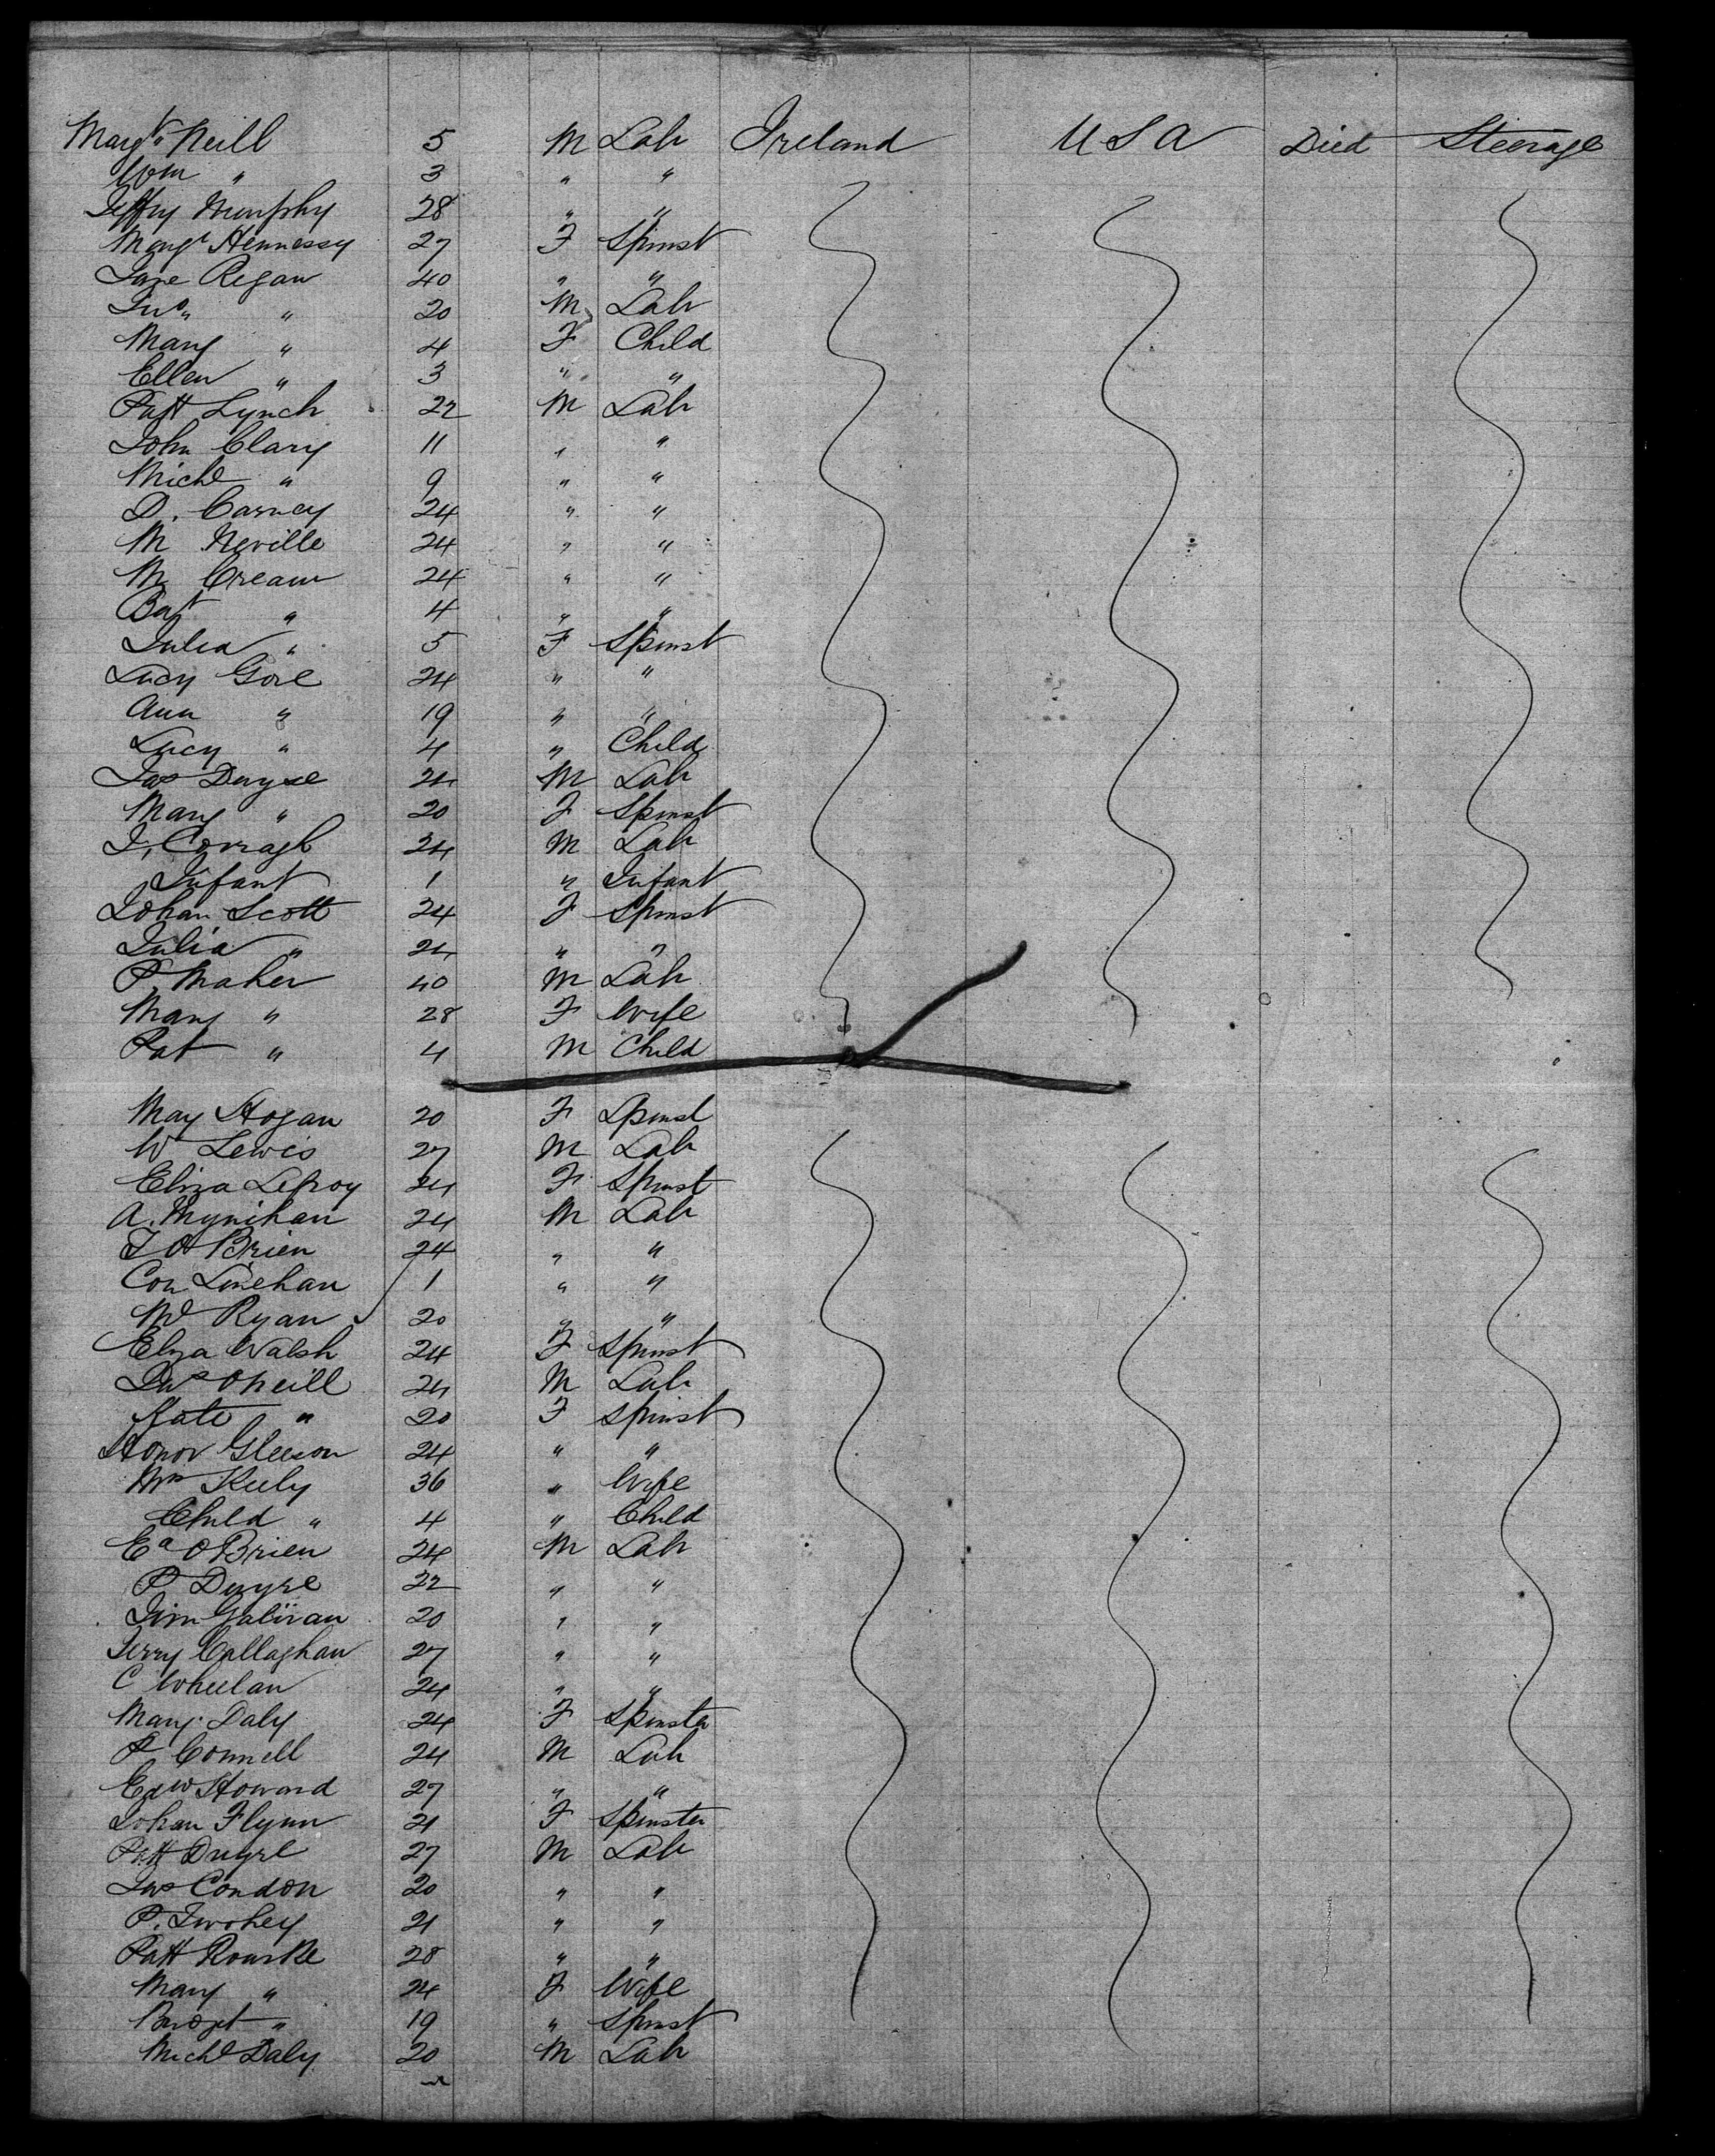 Margt Neill 5 M Lab Ireland USA Died Steerage
Wm " 3 " "
Jeffry Murphy 28 " "
Margt Hennessy 27 F Spinst
Jane Regan 40 " "
Jno " 20 M Lab
Mary " 4 F Child
Ellen " 3 " "
Patt Lynch 22 M Lab
John Clary 11 " "
Michl " 9 " "
D. Carney 24 " "
M Neville 24 " "
M Cream 24 " "
Bat " 4 " "
Julia " 5 F Spinst
Lucy Gore 24 " "
Ann " 19 " "
Lucy " 4 " Child
Jas Dwyre 24 M Lab
Mary " 20 F Spinst
J. Corragh 24 M Lab
Infant 1 " Infant
Johan Scott 24 F Spinst
Julia " 24 " "
P. Maher 40 M Lab
Mary " 28 F Wife
Pat " 4 M Child
May Hogan 20 F Spinst
W Lewis 27 M Lab
Eliza Lefroy 24 F Spinst
A. Mynihan 24 M Lab
J O Brien 24 " "
Con Linehan 1 " "
Ml Ryan 20 " "
Eliza Walsh 24 F Spinst
Jas ONeill 24 M Lab
Kate " 20 F Spinst
Honor Gleeson 24 " "
Mrs Keely 36 " Wife
Child " 4 " Child
Ed OBrien 24 M Lab
P. Dwyre 22 " "
Jim Galivan 20 " "
Jerry Callaghan 27 " "
C Wheelan 24 " "
Mary Daly 24 F Spinster
P Connell 24 M Lab
Edw Howard 27 " "
Johan Flynn 21 F Spinster
Patt Dwyre 27 M Lab
Jas Condon 20 " "
P. Twohey 21 " "
Patt Rourke 28 " "
Mary " 24 F Wife
Bridgt " 19 " Spinst
Michl Daly 20 M Lab